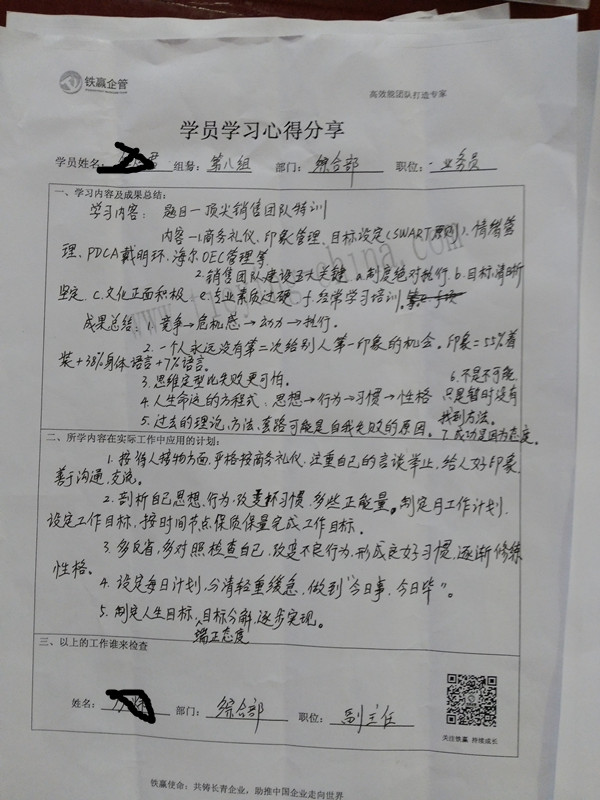 铁赢企管
高效能团队打造专家
学员学习心得分享
学员姓名: 君 组号: 第八组 部门: 综合部 职位: 业务员
一、学习内容及成果总结:
学习内容: 题目一顶尖销售团队特训
内容一1.商务礼仪、印象管理、目标设定(SWART原则)、情绪管
理、PDCA戴明环、海尔OEC管理等
2.销售团队建设五大关键 a.制度绝对执行 b.目标清晰
坚定 c.文化正面积极 e.专业素质过硬 f.经常学习培训。
成果总结: 1.竞争→危机感→动力→执行。
2.一个人永远没有第二次给别人第一印象的机会。印象=55%着
装+38%身体语言+7%语言。
3.思维定型比失败更可怕。
4.人生命运的方程式:思想→行为→习惯→性格
5.过去的理论、方法、套路可能是自我失败的原因。
6.不是不可能,
只是暂时没有
找到方法。
7.成功是因为态度。
二、所学内容在实际工作中应用的计划:
1.接待人接物方面,严格按商务礼仪,注重自己的言谈举止,给人好印象,
善于沟通,交流。
2.剖析自己思想、行为,改变坏习惯,多些正能量。制定月工作计划,
设定工作目标,按时间节点保质保量完成工作目标。
3.多反省,多对照检查自己,改变不良行为,形成良好习惯,逐渐修炼
性格。
4.设定每日计划,分清轻重缓急,做到“今日事,今日毕”。
5.制定人生目标,目标分解,逐步实现。
端正态度
三、以上的工作谁来检查
姓名: 部门: 综合部 职位: 副主任
关注铁赢 持续成长
铁赢使命:共铸长青企业,助推中国企业走向世界